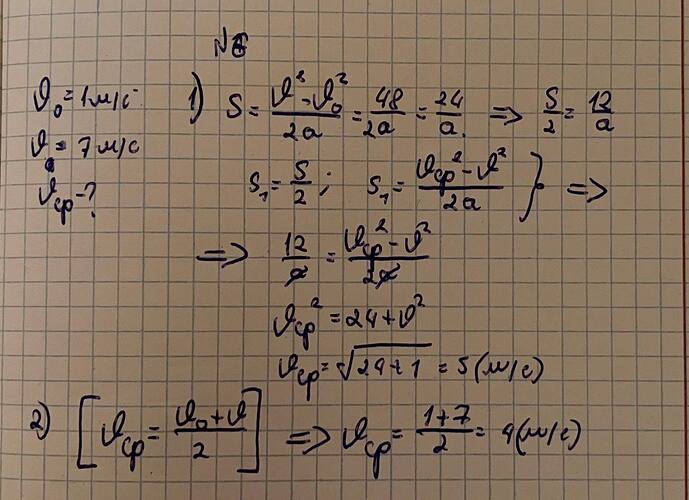 №6
ϑ₀ = 1 м/с
ϑ = 7 м/с
ϑср - ?
1) S = (ϑ² - ϑ₀²)/2a = 48/2a = 24/a. => S/2 = 12/a
S₁ = S/2; S₁ = (ϑср² - ϑ²)/2a } =>
=> 12/a = (ϑср² - ϑ²)/2a
ϑср² = 24 + ϑ²
ϑср = √(24 + 1) = 5 (м/с)
2) [ϑср = (ϑ₀ + ϑ)/2] => ϑср = (1 + 7)/2 = 4 (м/с)